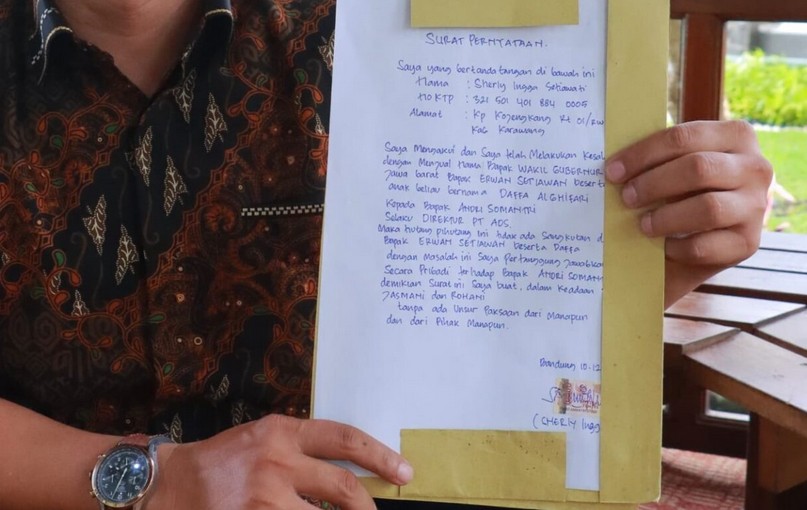 SURAT PERNYATAAN.
Saya yang bertanda tangan di bawah ini
Nama : Sherly Ingga Setiawati
No KTP : 321 501 401 884 0005
Alamat : Kp Kojengkang Rt 01/RW
Kab Karawang
Saya Mengakui dan Saya telah Melakukan Kesal
dengan Menjual Nama Bapak WAKIL GUBERNUR
Jawa barat Bapak ERWAN SETIAWAN beserta
anak beliau bernama DAFFA ALGHIFARI
Kepada Bapak ANDRI SOMANTRI
Selaku DIREKTUR PT ADS.
Maka hutang piutang ini tidak ada Sangkutan d
Bapak ERWAN SETIAWAN beserta Daffa
dengan Masalah ini Saya Pertanggung Jawabkan
Secara Pribadi terhadap Bapak ANDRI SOMAN
demikian Surat ini Saya buat, dalam Keadaan
JASMANI dan ROHANI
tanpa ada Unsur Paksaan dari Manapun
dan dari Pihak Manapun.
Bandung 10.12
(SHERLY Ingg